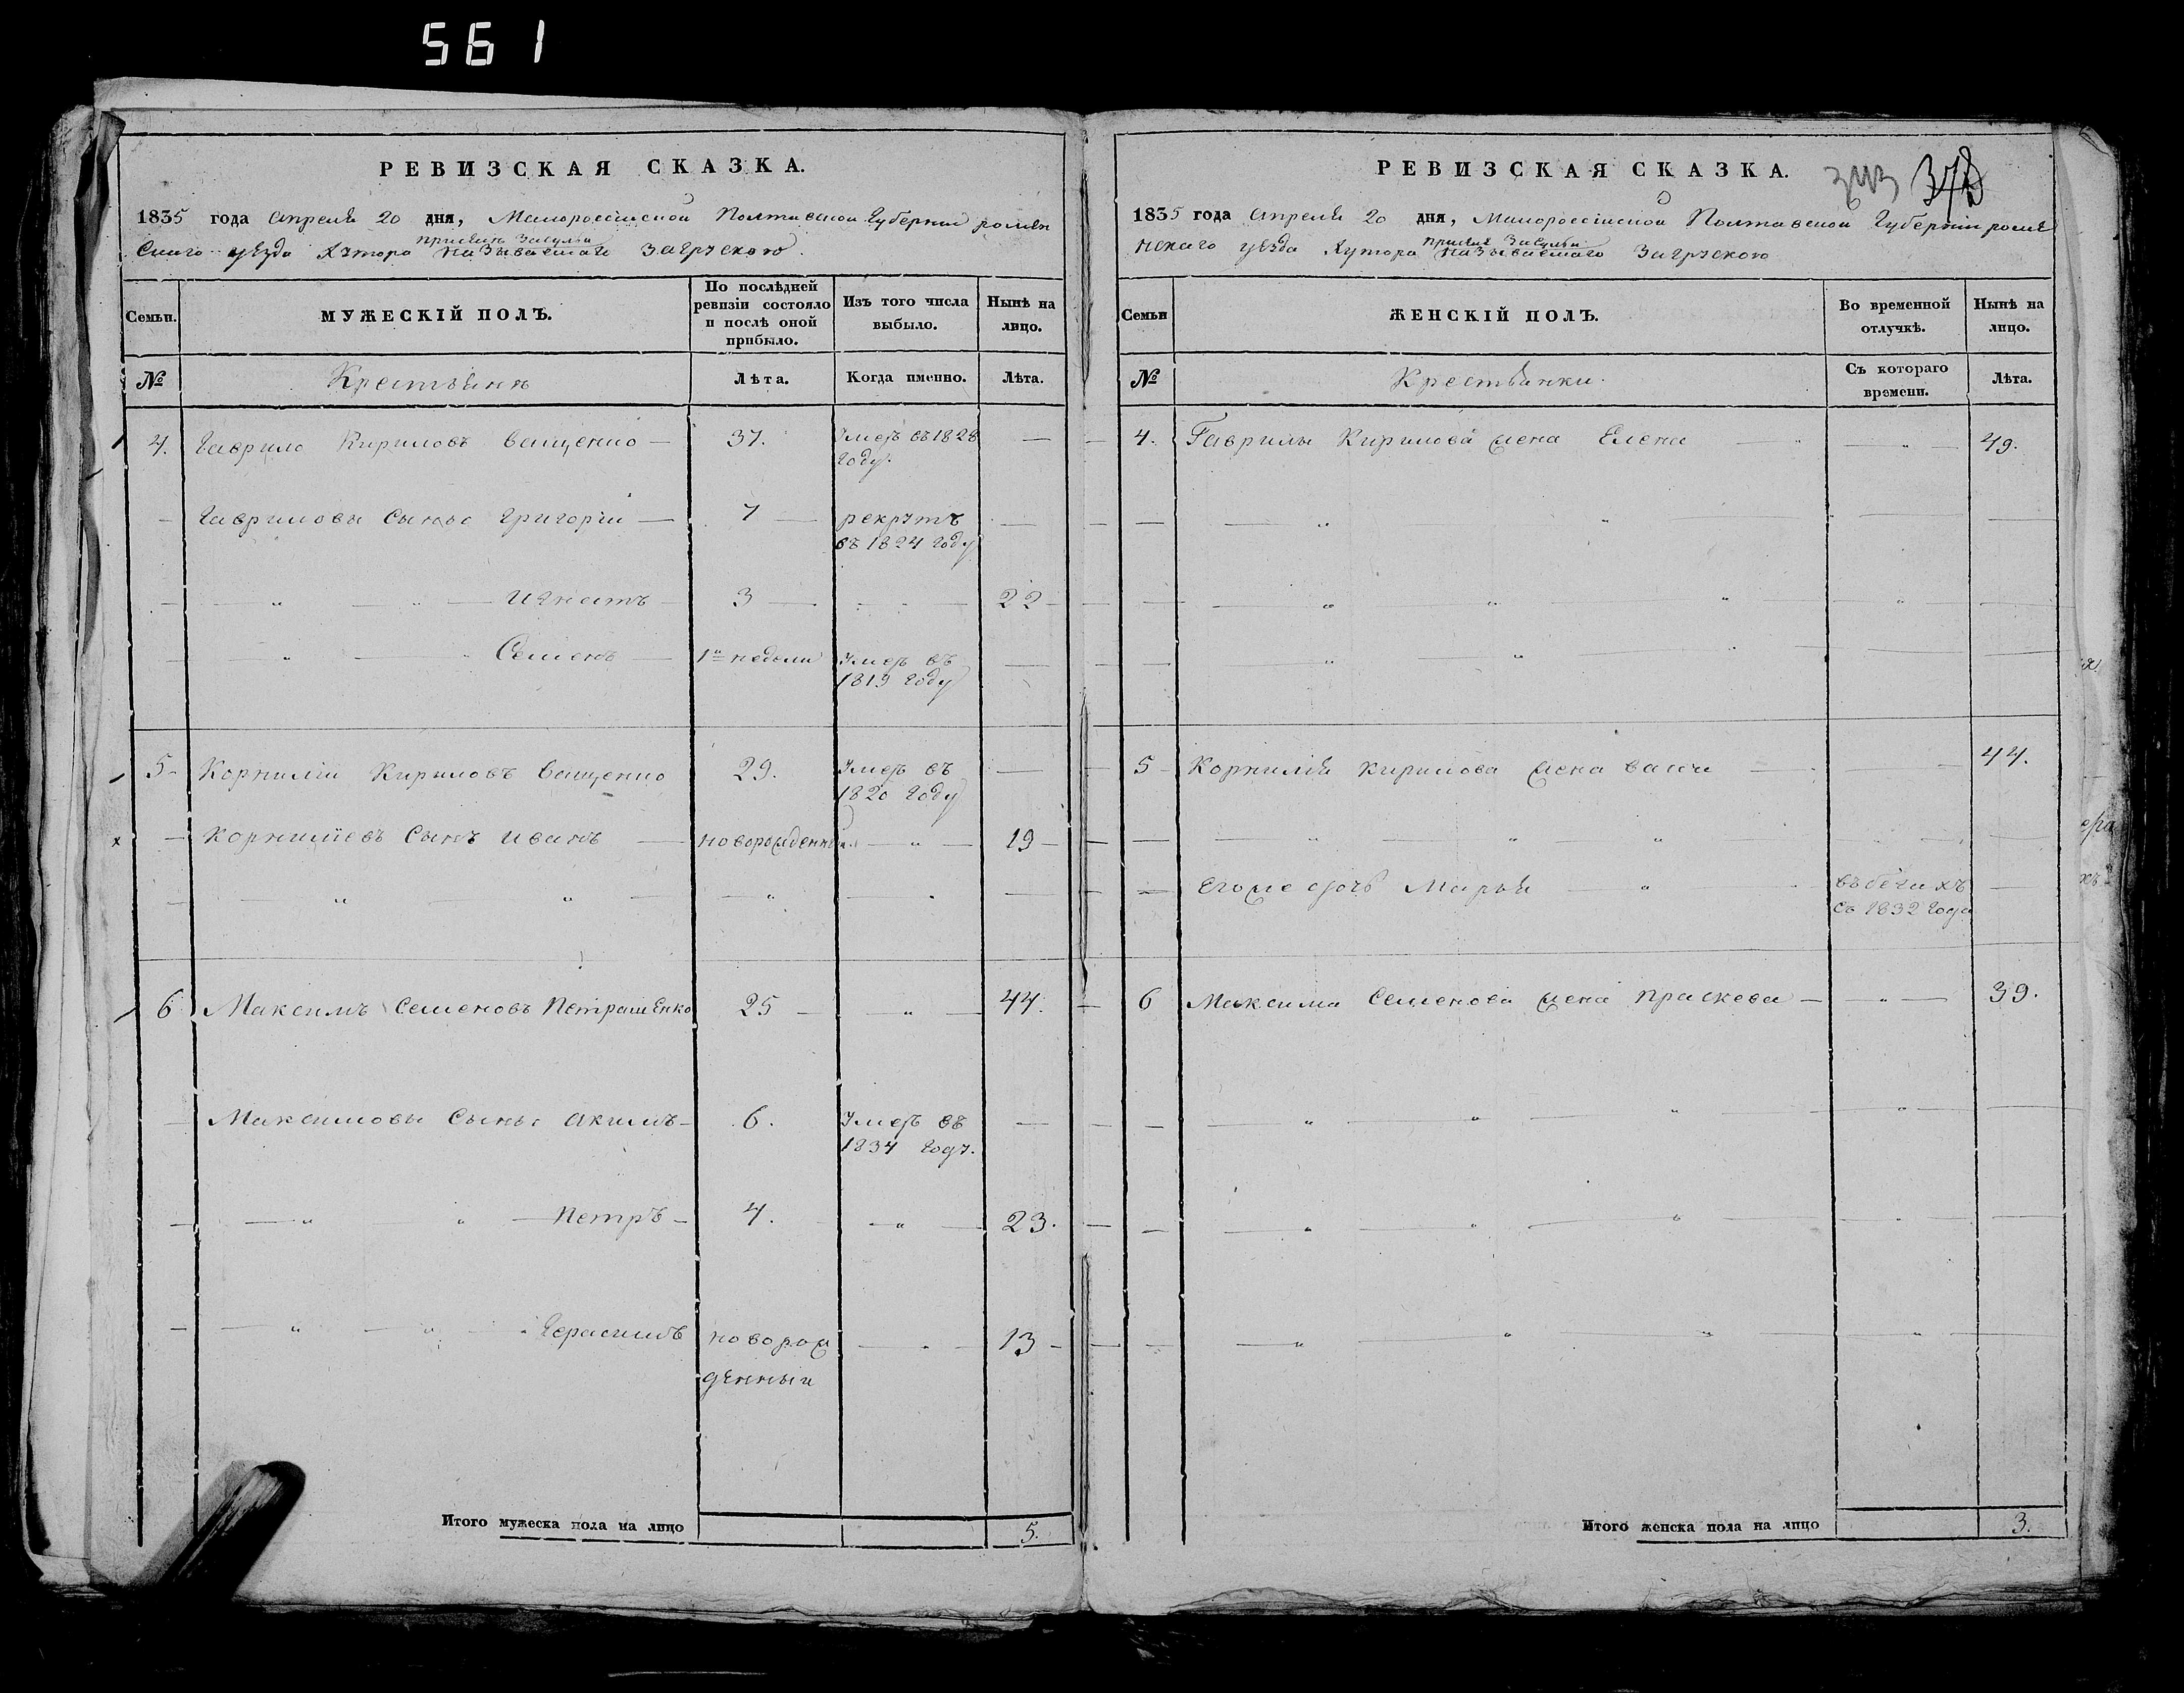 561
РЕВИЗСКАЯ СКАЗКА.
1835 года апреля 20 дня, Малороссiйской Полтавской Губернiи ромен
скаго уезда Хутора называемаго Загрускою
М У Ж Е С К І Й П О Л Ъ.
Семьи.
По послѣдней
ревизіи состояло
и послѣ оной
прибыло.
Изъ того числа
выбыло.
Нынѣ на
лицо.
№
Крестьяне
Лѣта.
Когда именно.
Лѣта.
4. Гаврило Кириловъ Ващенко 37. Умеръ въ 1828
Году.
Гавриловы Сыновья Григорiй 7 рекрутъ
въ 1824 Году
Игнатъ 3 22
Семенъ 1й недели Умеръ въ
1819 Году
5 Корнилiй Кириловъ Ващенко 29. Умеръ въ
1820 Году
Корнилiевъ Сынъ Иванъ новорожденный 19
6 Максимъ Семеновъ Петрашенко 25 44.
Максимовы Сынья Акимъ 6. Умеръ въ
1834 Году.
Петръ 4. 23.
Герасимъ новорож 13
денный
Итого мужеска пола на лицо 5.
РЕВИЗСКАЯ СКАЗКА.
343 372
1835 года апреля 20 дня, Малороссiйской Полтавской Губернiи роме
нскаго уезда Хутора называемаго Загрускою
Семьи
ЖЕНСКІЙ ПОЛЪ.
Во временной
отлучкѣ.
Нынѣ на
лицо.
№
Крестьянки.
Съ котораго
времени.
Лѣта.
4. Гаврилы Кирилова жена Елена 49.
5 Корнилiя Кирилова жена 44.
Егоже дочь Марья въ бегахъ
съ 1832 Года
6 Максима Семенова жена Праскева 39.
Итого женска пола на лицо 3.